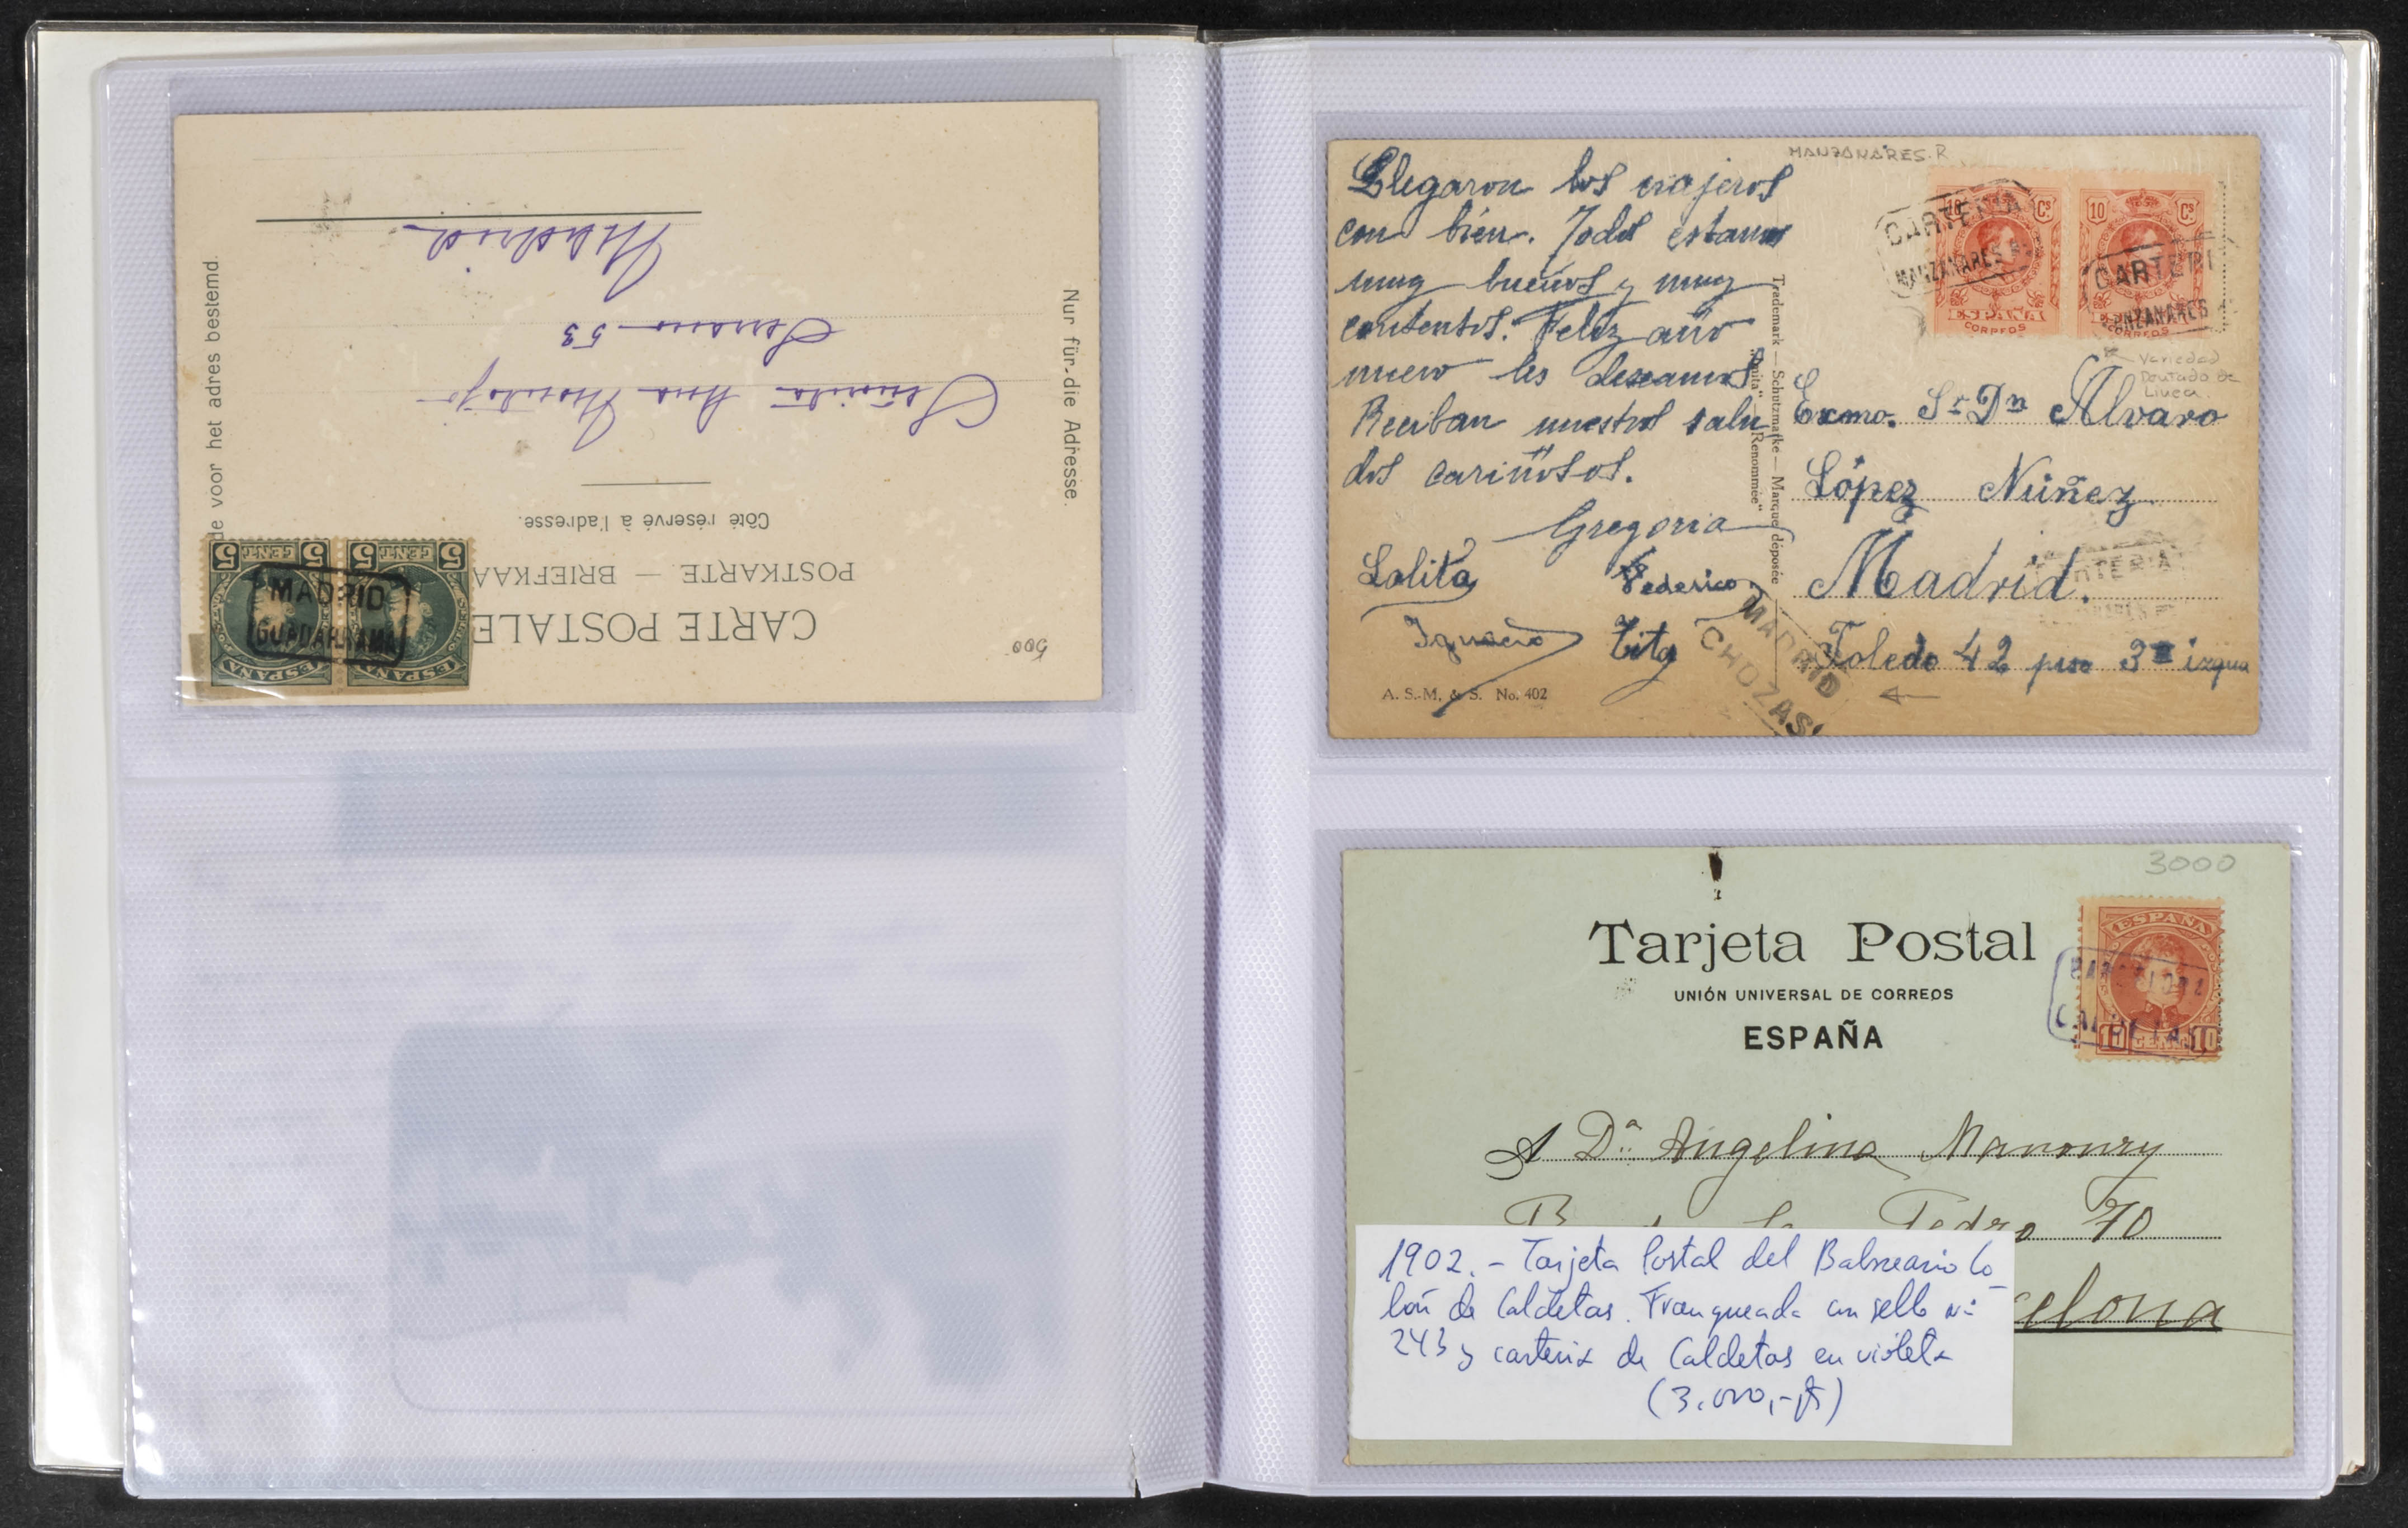 CARTE POSTALE
POSTKARTE — BRIEFKAA
Côté réservé à l'adresse.
Señorita Ana
Serrano 53
Madrid
Nur für die Adresse.
de voor het adres bestemd.
500
5 CENT 5
5 CENT 5
ESPAÑA
ESPAÑA
MADRID
GUADARRAMA
MANZANARES.R
Llegaron los viajeros
con bien. Todos estamos
muy buenos y muy
contentos. Feliz año
nuevo les deseamos
Reciban nuestros salu
dos cariñosos.
Gregoria
Lolita Federico
Ignacio Tita
A. S.-M. & S. No. 402
Trademark — Schutzmarke — Marque déposée
"Renommée"
10 Cs
10 Cs
ESPAÑA
CORREOS
CORREOS
CARTERIA
MANZANARES R
CARTERI
MANZANARES
Variedad
Dentado de
Linea.
Exmo. Sr Dn Alvaro
López Núñez
Madrid.
Toledo 42 piso 3º izqua
CARTERIA
MADRID
CHOZAS
3000
Tarjeta Postal
UNIÓN UNIVERSAL DE CORREOS
ESPAÑA
ESPAÑA
10 CENT. 10
CALDETAS
A Dª Angelina Manoury
Pedro 70
celona
1902.- Tarjeta Postal del Balneario Co-
lón de Caldetas. Franqueada con sello nº
243 y cartería de Caldetas en violeta
(3.000,- pts)